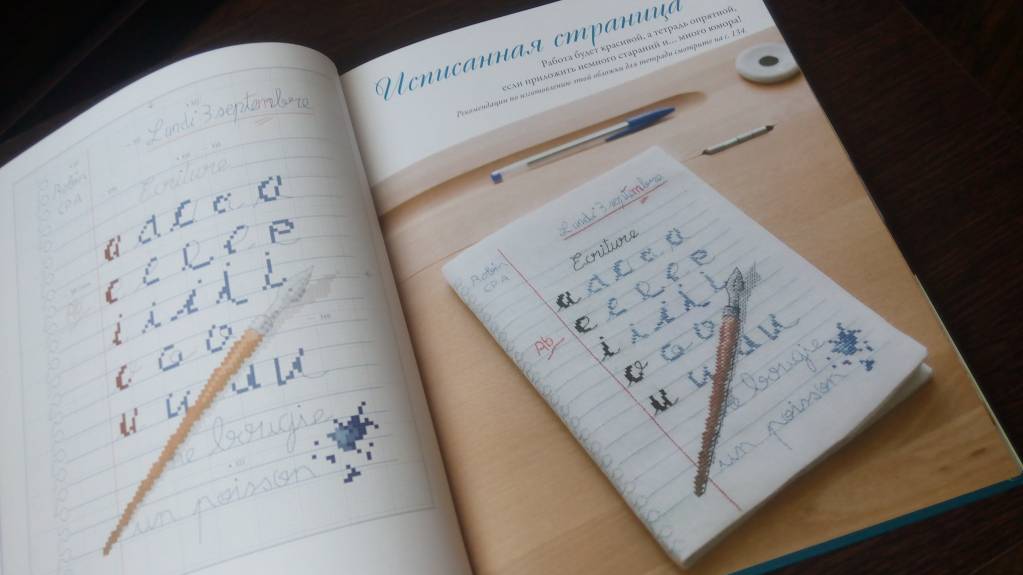 Lundi 3 septembre
Robin
CP.A
Ecriture
a a a a a
e e e e e
i i i i i
o o o
u u u u
bougie
un poisson
Исписанная страница
Работа будет красивой, а тетрадь опрятной,
если приложить немного стараний и... много юмора!
Рекомендации по изготовлению этой обложки для тетради смотрите на с. 134.
Lundi 3 septembre
Robin
CP.A
Ecriture
a a a a a
e e e e e
Ab
i i i i i
o o o
u u u u
bougie
un poisson